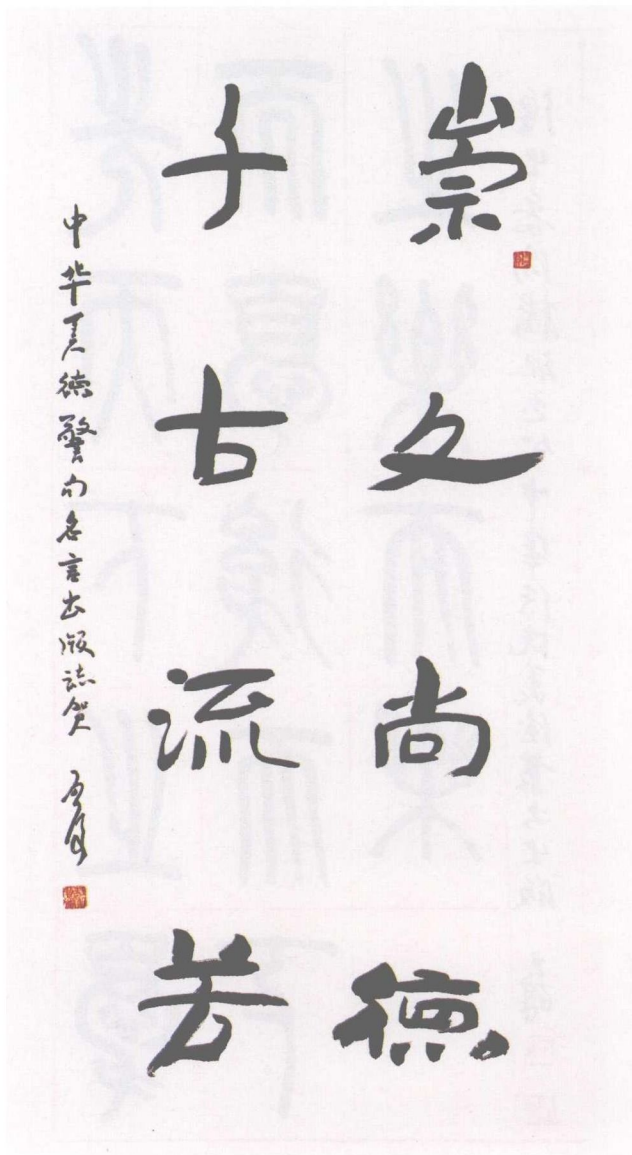 崇文尚德
千古流芳
中华美德警句名言出版誌贺